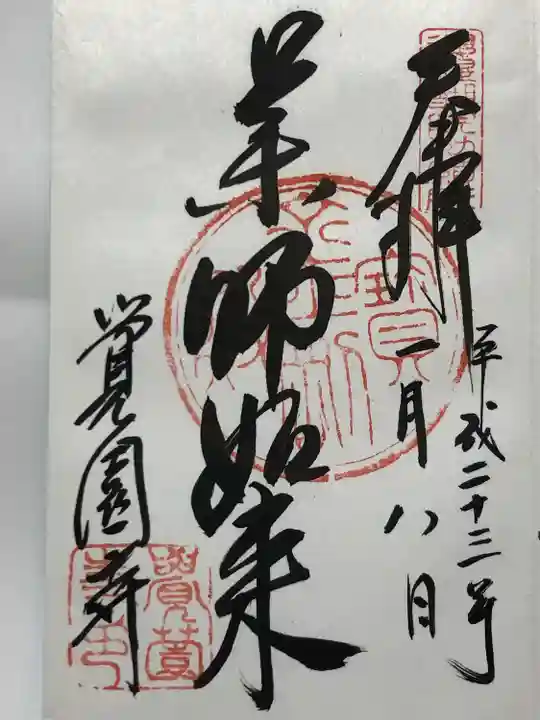 奉拝
平成二十三年
一月八日
薬師如来
覚園寺